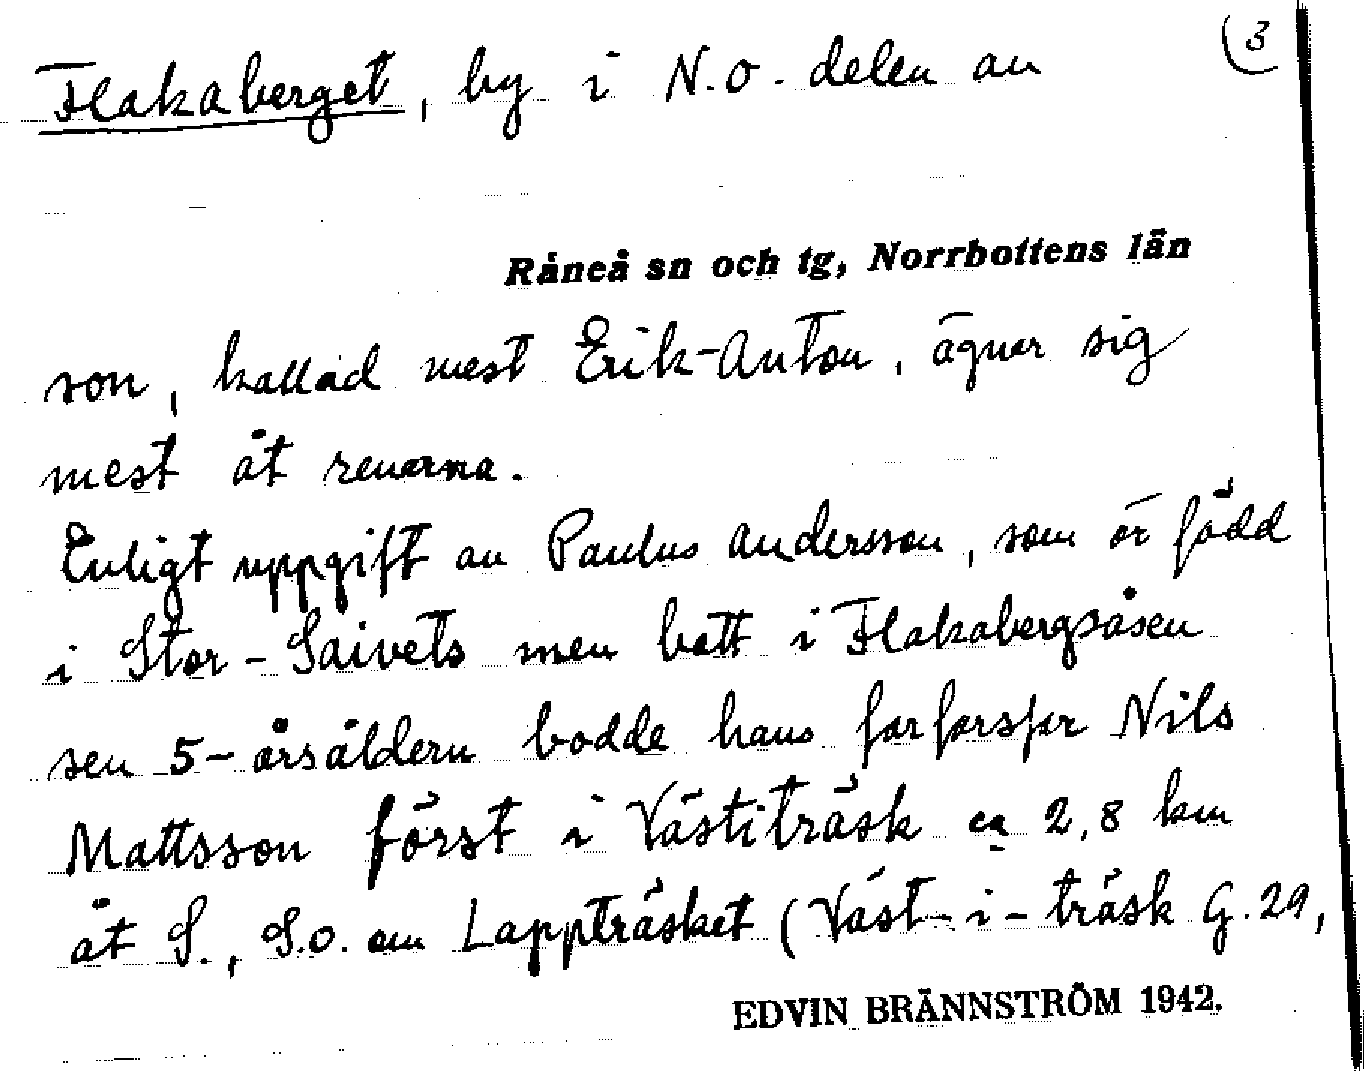 3
Flakaberget, by i N.O. delen av
Råneå sn och tg, Norrbottens län
son, kallad mest Erik-Anton, ägnar sig
mest åt renarna.
Enligt uppgift av Paulus Andersson, som är född
i Stor-Saivets men bott i Flakabergsåsen
sen 5-årsåldern bodde hans farfarsfar Nils
Mattsson först i Västiträsk ca 2,8 km
åt S., S.O. om Lappträsket (Väst-i-träsk G. 29,
EDVIN BRÄNNSTRÖM 1942.